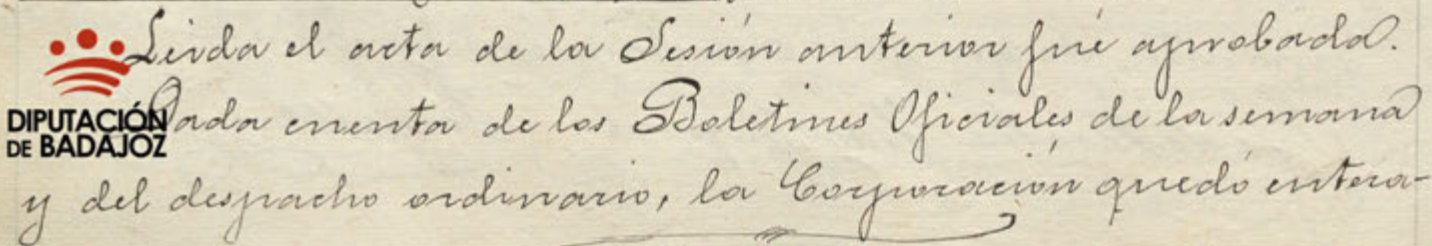 Leida el acta de la Sesión anterior fué aprobada.
DIPUTACIÓN
DE BADAJOZ
Dada cuenta de los Boletines Oficiales de la semana
y del despacho ordinario, la Corporación quedó entera-